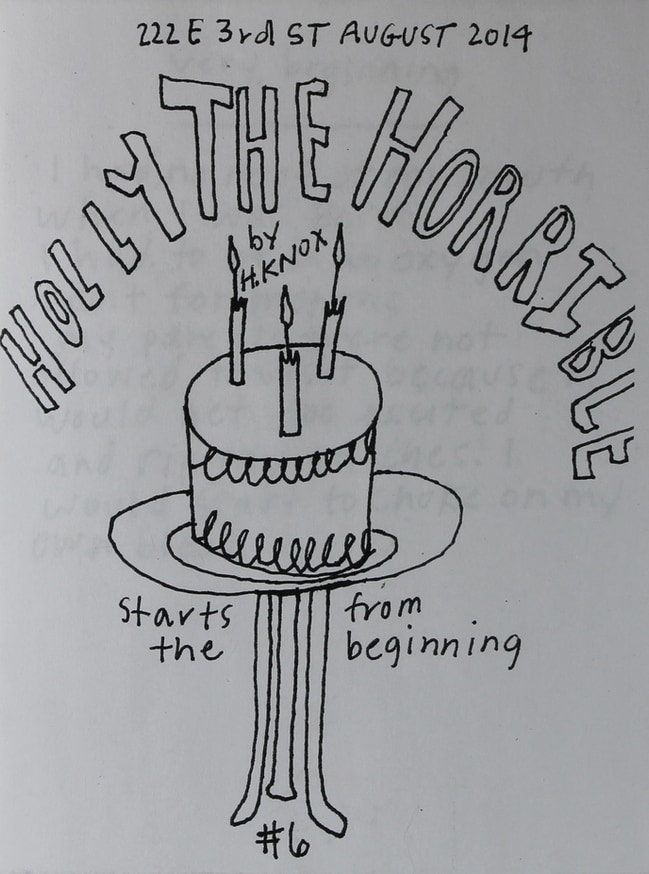 222 E 3rd ST AUGUST 2014
HOLLY THE HORRIBLE
by
H. KNOX
starts from
the beginning
#6